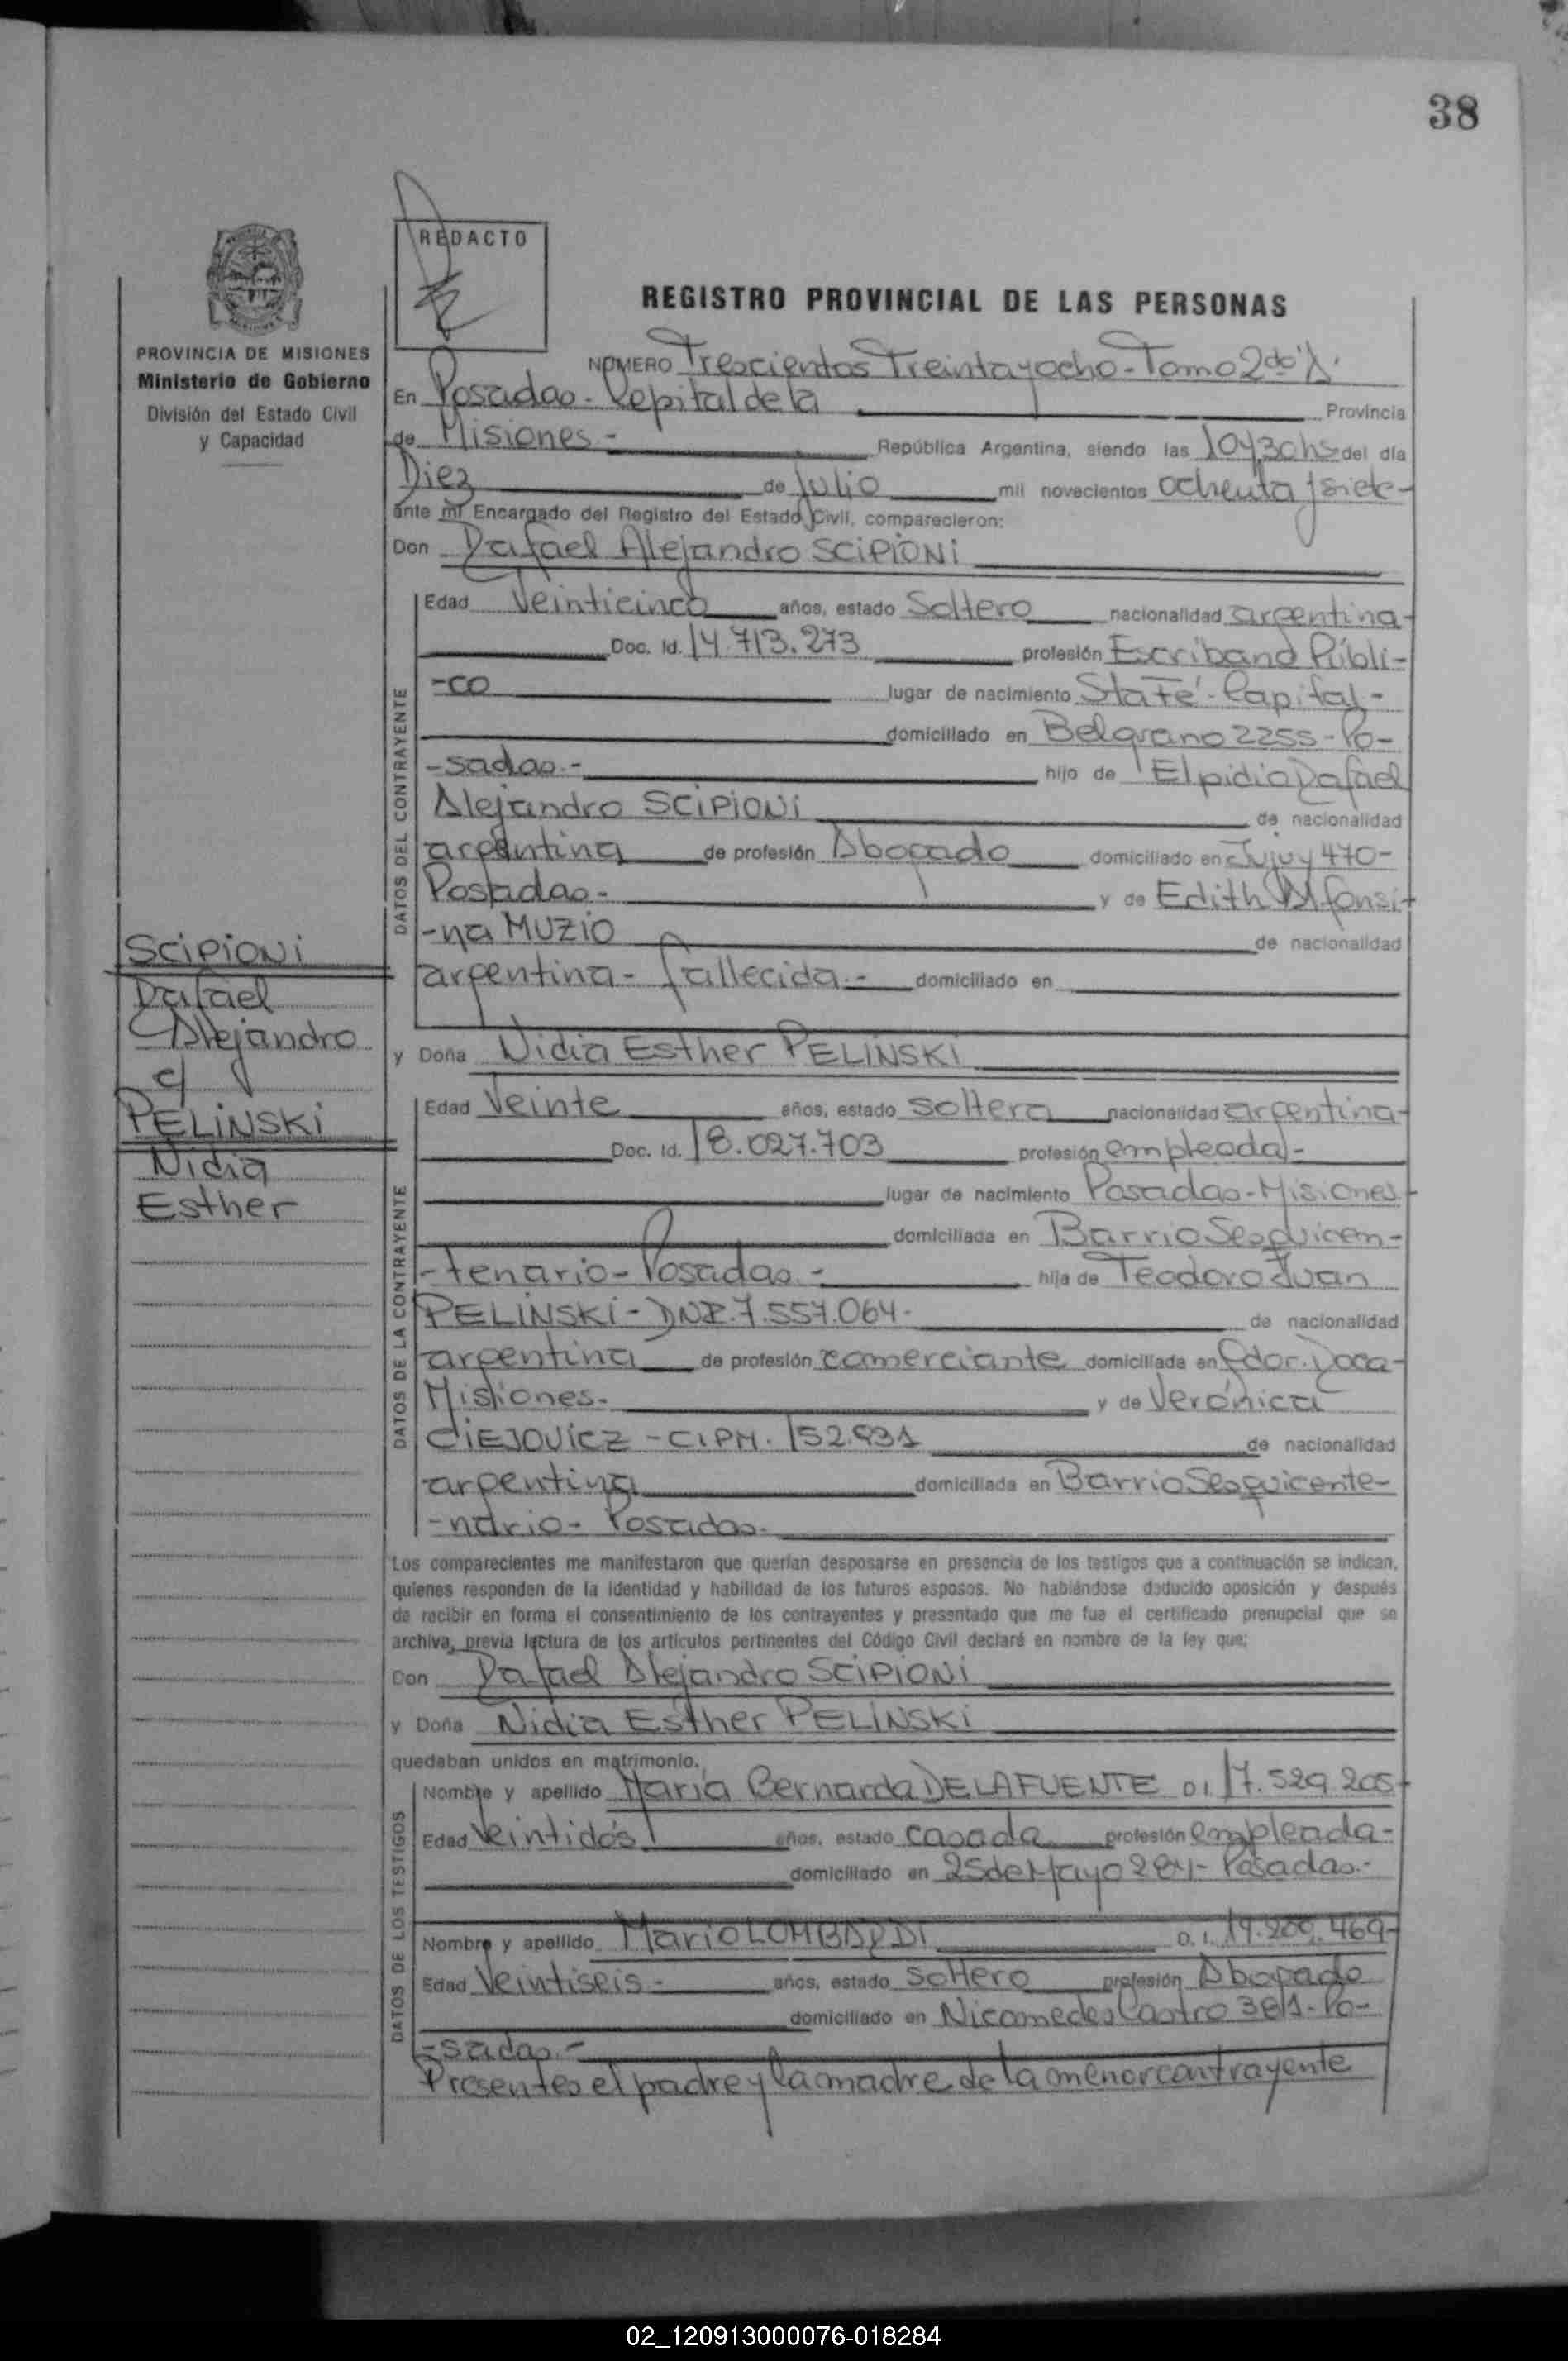 38
REDACTO
REGISTRO PROVINCIAL DE LAS PERSONAS
PROVINCIA DE MISIONES
Ministerio de Gobierno
División del Estado Civil
y Capacidad
NUMERO Trescientos Treinta y ocho - Tomo 2do "A"
En Posadas - Capital de la Provincia
de Misiones - República Argentina, siendo las 10y30hs del día
Diez de Julio mil novecientos ochenta y siete -
ante mí Encargado del Registro del Estado Civil, comparecieron:
Don Rafael Alejandro SCIPIONI
DATOS DEL CONTRAYENTE
Edad Veinticinco años, estado Soltero nacionalidad argentina -
Doc. Id. 14.713.273 profesión Escribano Públi-
-co lugar de nacimiento Sta Fé - Capital -
domiciliado en Belgrano 2255 - Po-
-sadas.- hijo de Elpidio Rafael
Alejandro SCIPIONI de nacionalidad
argentina de profesión Abogado domiciliado en Jujuy 470-
Posadas - y de Edith Alfonsi-
-na MUZIO de nacionalidad
argentina - fallecida.- domiciliado en
SCIPIONI
Rafael
Alejandro
c/
PELINSKI
Nidia
Esther
y Doña Nidia Esther PELINSKI
DATOS DE LA CONTRAYENTE
Edad Veinte años, estado soltera nacionalidad argentina -
Doc. Id. 18.027.703 profesión empleada -
lugar de nacimiento Posadas - Misiones
domiciliada en Barrio Sesquicen-
-tenario - Posadas.- hija de Teodoro Juan
PELINSKI - DNI. 7.557.064. de nacionalidad
argentina de profesión comerciante domiciliada en Gdor. Roca -
Misiones. y de Verónica
CIEJOVICZ - C.I.P.M. 152.931 de nacionalidad
argentina domiciliada en Barrio Sesquicente-
-nario - Posadas.
Los comparecientes me manifestaron que querían desposarse en presencia de los testigos que a continuación se indican,
quienes responden de la identidad y habilidad de los futuros esposos. No habiéndose deducido oposición y después
de recibir en forma el consentimiento de los contrayentes y presentado que me fue el certificado prenupcial que se
archiva, previa lectura de los artículos pertinentes del Código Civil declaré en nombre de la ley que:
Don Rafael Alejandro SCIPIONI
y Doña Nidia Esther PELINSKI
quedaban unidos en matrimonio.
DATOS DE LOS TESTIGOS
Nombre y apellido María Bernarda DE LA FUENTE D.I. 17.529.205 -
Edad Veintidós años, estado casada profesión empleada -
domiciliado en 25 de Mayo 284 - Posadas.-
Nombre y apellido Mario LOMBARDI D.I. 14.209.469 -
Edad Veintiseis - años, estado soltero profesión Abogado
domiciliado en Nicomedes Castro 381 - Po-
-sadas.-
Presentes el padre y la madre de la menor contrayente
02_120913000076-018284